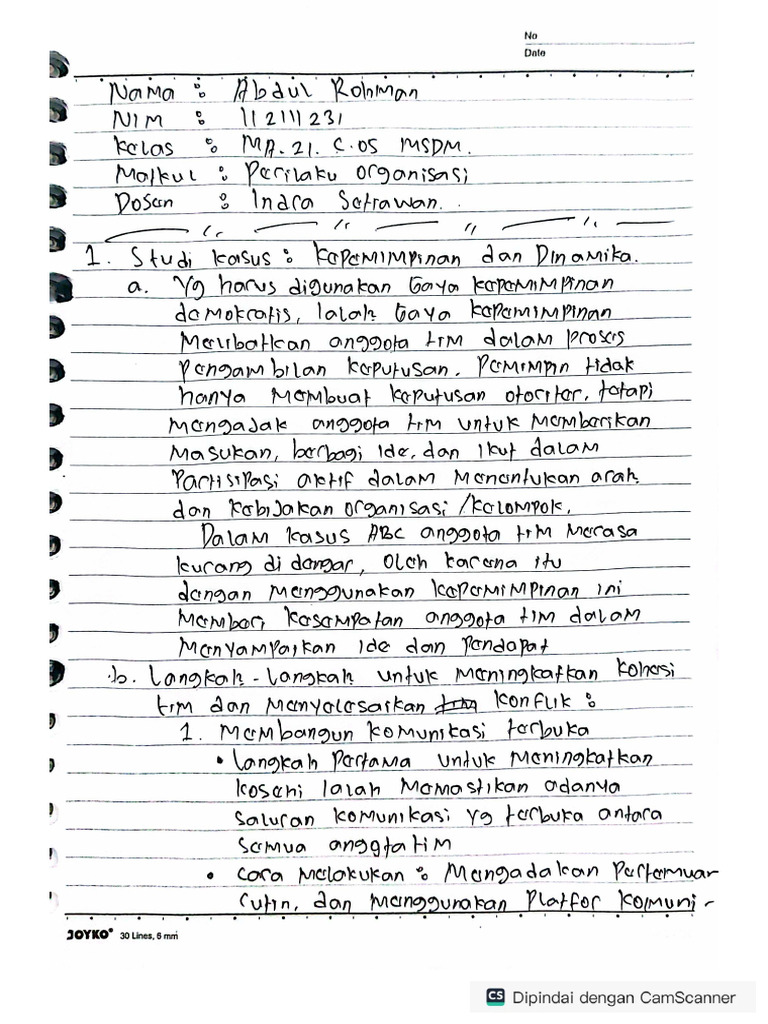 No
Date
Nama : Abdul Rohman
NIM : 112111231
Kelas : MA.21.C.05 MSDM.
Matkul : Perilaku Organisasi
Dosen : Indra Setiawan.
1. Studi kasus : Kepemimpinan dan Dinamika.
a. Yg harus digunakan Gaya kepemimpinan
demokratis, ialah Gaya kepemimpinan
Melibatkan anggota tim dalam proses
Pengambilan keputusan. Pemimpin tidak
hanya Membuat keputusan otoriter, tetapi
mengadak anggota tim untuk Memberikan
Masukan, berbagi ide, dan ikut dalam
Partisipasi aktif dalam Menentukan arah
dan kebijakan organisasi /kelompok.
Dalam kasus ABC anggota tim Merasa
kurang di dengar, Oleh karena itu
dengan Menggunakan kepemimpinan ini
Memberi kesempatan anggota tim dalam
Menyampaikan ide dan Pendapat
b. Langkah-langkah untuk Meningkatkan Kohesi
tim dan Menyelesaikan tim konflik :
1. Membangun komunikasi terbuka
• Langkah Pertama untuk Meningkatkan
kosehi ialah Memastikan adanya
saluran komunikasi yg terbuka antara
semua anggta tim
• Cara Melakukan : Mengadakan Pertemuar
rutin, dan Menggunakan Platfor komuni-
JOYKO 30 Lines, 6 mm
CS Dipindai dengan CamScanner